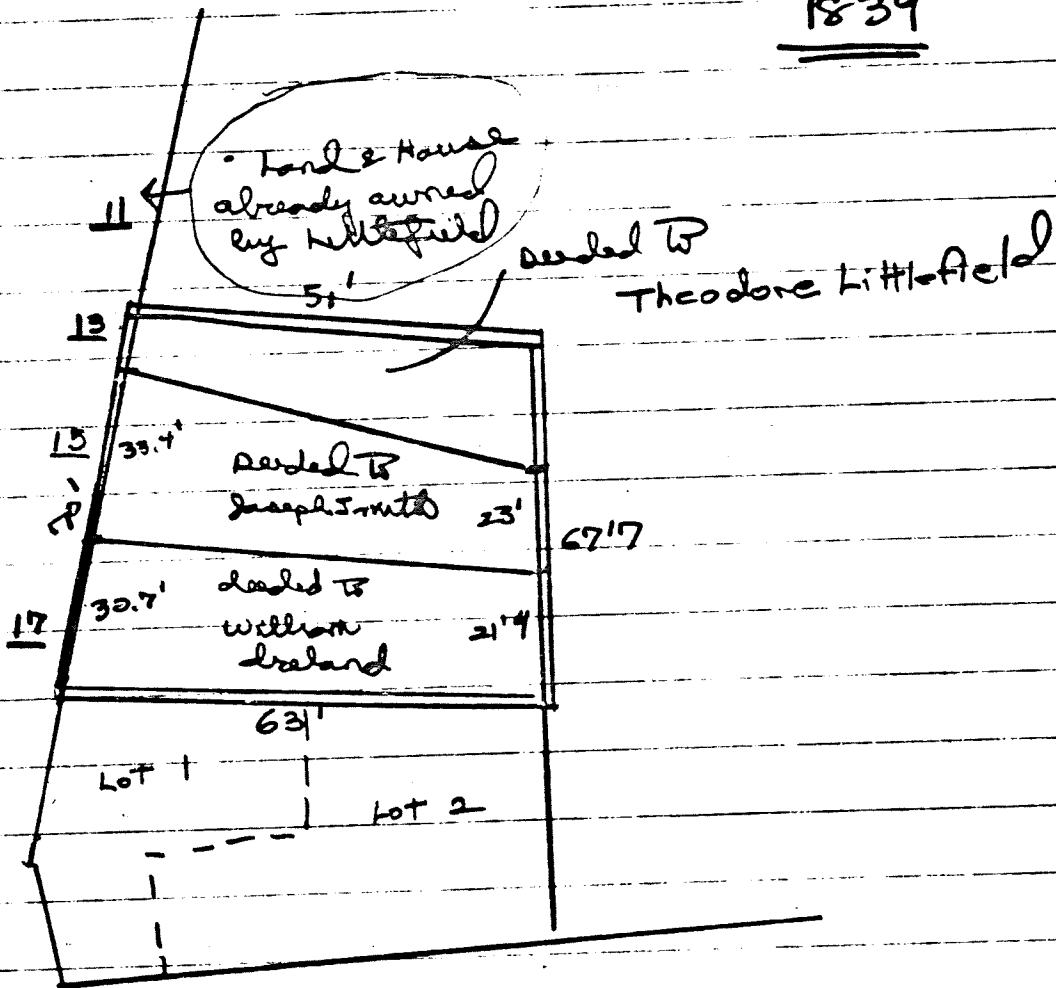 1839
• Land & House
already owned
by Littlefield
11
deeded to
Theodore Littlefield
51'
13
15
33.4'
Deeded to
Joseph
23'
67'7
17
30.7'
deeded to
William
Ireland
21'4
63'
Lot 1
Lot 2